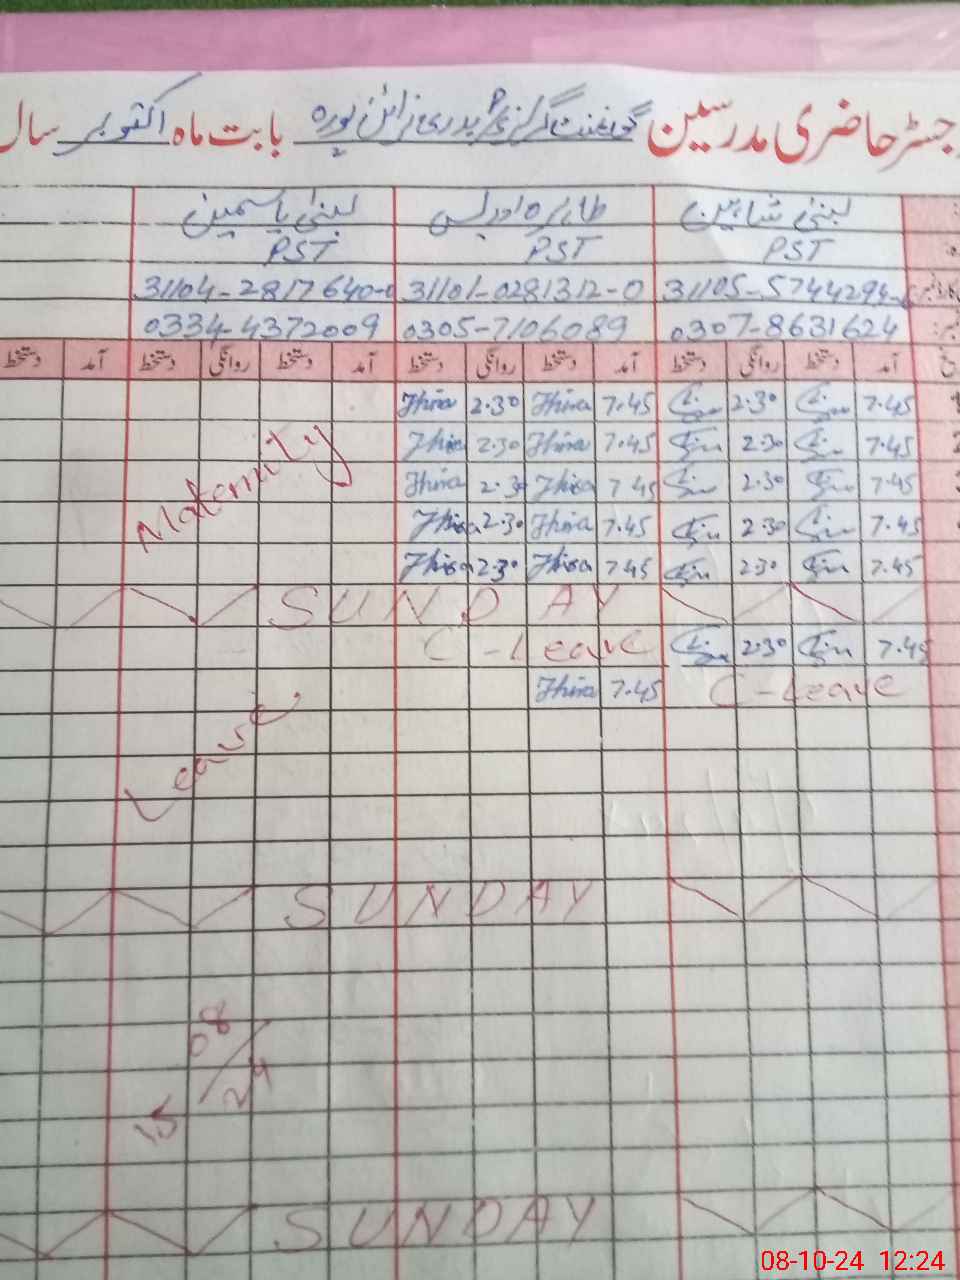 رجسٹر حاضری مدرسین گورنمنٹ گرلز پرائمری بابت ماہ اکتوبر سال
لبنیٰ شاہین طاہرہ ادریس لبنیٰ یاسمین
PST PST PST
31105-5744294- 31101-0281312-0 31104-2817640-0
0307-8631624 0305-7106089 0334-4372009
آمد دستخط روانگی دستخط آمد دستخط روانگی دستخط آمد دستخط روانگی دستخط آمد دستخط
7.45 2.30 7.45 Thira 2.30 Thira
7.45 2.30 7.45 Thira 2.30 Thira
7.45 2.30 7.45 Thira 2.30 Thira
7.45 2.30 7.45 Thira 2.30 Thira
7.45 2.30 7.45 Thira 2.30 Thira
Maternity
SUNDAY
7.45 2.30 C-Leave
C-Leave 7.45 Thira
Leave
SUNDAY
15 08/24
SUNDAY
08-10-24 12:24